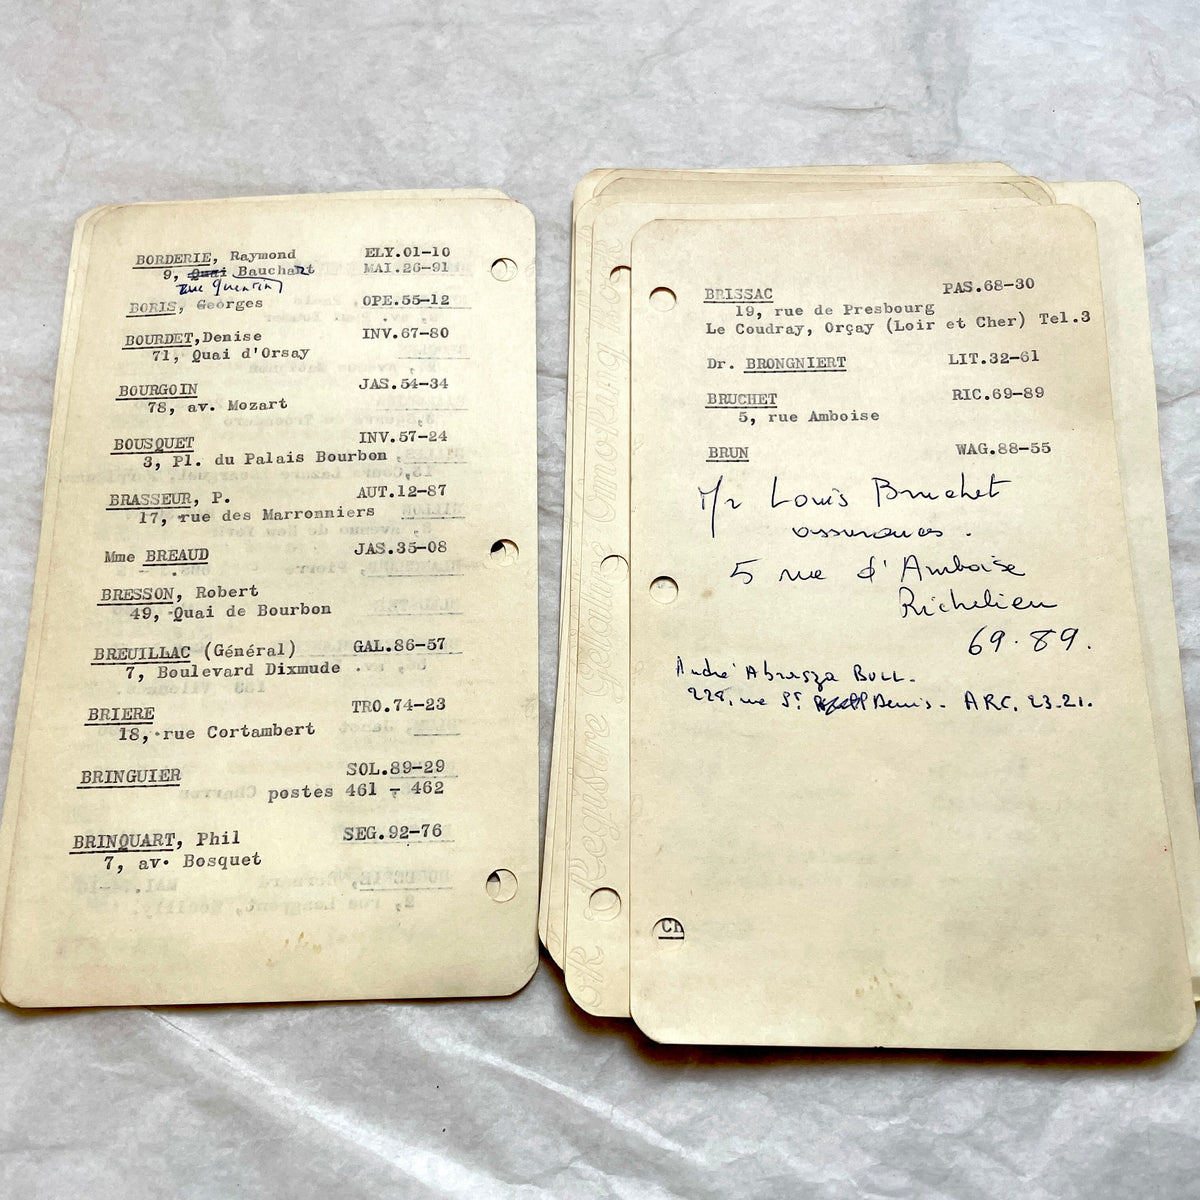 BORDERIE, Raymond ELY.01-10
9, Quai Bauchart MAI.26-91
Rue Quentin
BORIS, Georges OPE.55-12
BOURDET,Denise INV.67-80
71, Quai d'Orsay
BOURGOIN JAS.54-34
78, av. Mozart
BOUSQUET INV.57-24
3, Pl. du Palais Bourbon
BRASSEUR, P. AUT.12-87
17, rue des Marronniers
Mme BREAUD JAS.35-08
BRESSON, Robert
49, Quai de Bourbon
BREUILLAC (Général) GAL.86-57
7, Boulevard Dixmude
BRIERE TRO.74-23
18, rue Cortambert
BRINGUIER SOL.89-29
postes 461 - 462
BRINQUART, Phil SEG.92-76
7, av. Bosquet
BRISSAC PAS.68-30
19, rue de Presbourg
Le Coudray, Orçay (Loir et Cher) Tel.3
Dr. BRONGNIERT LIT.32-61
BRUCHET RIC.69-89
5, rue Amboise
BRUN WAG.88-55
Mr Louis Bruchet
assurances.
5 rue d'Amboise
Richelieu
69.89.
André BULL.
228, rue St Denis - ARC. 23.21.
Ch
Registure Gehature Omoskung